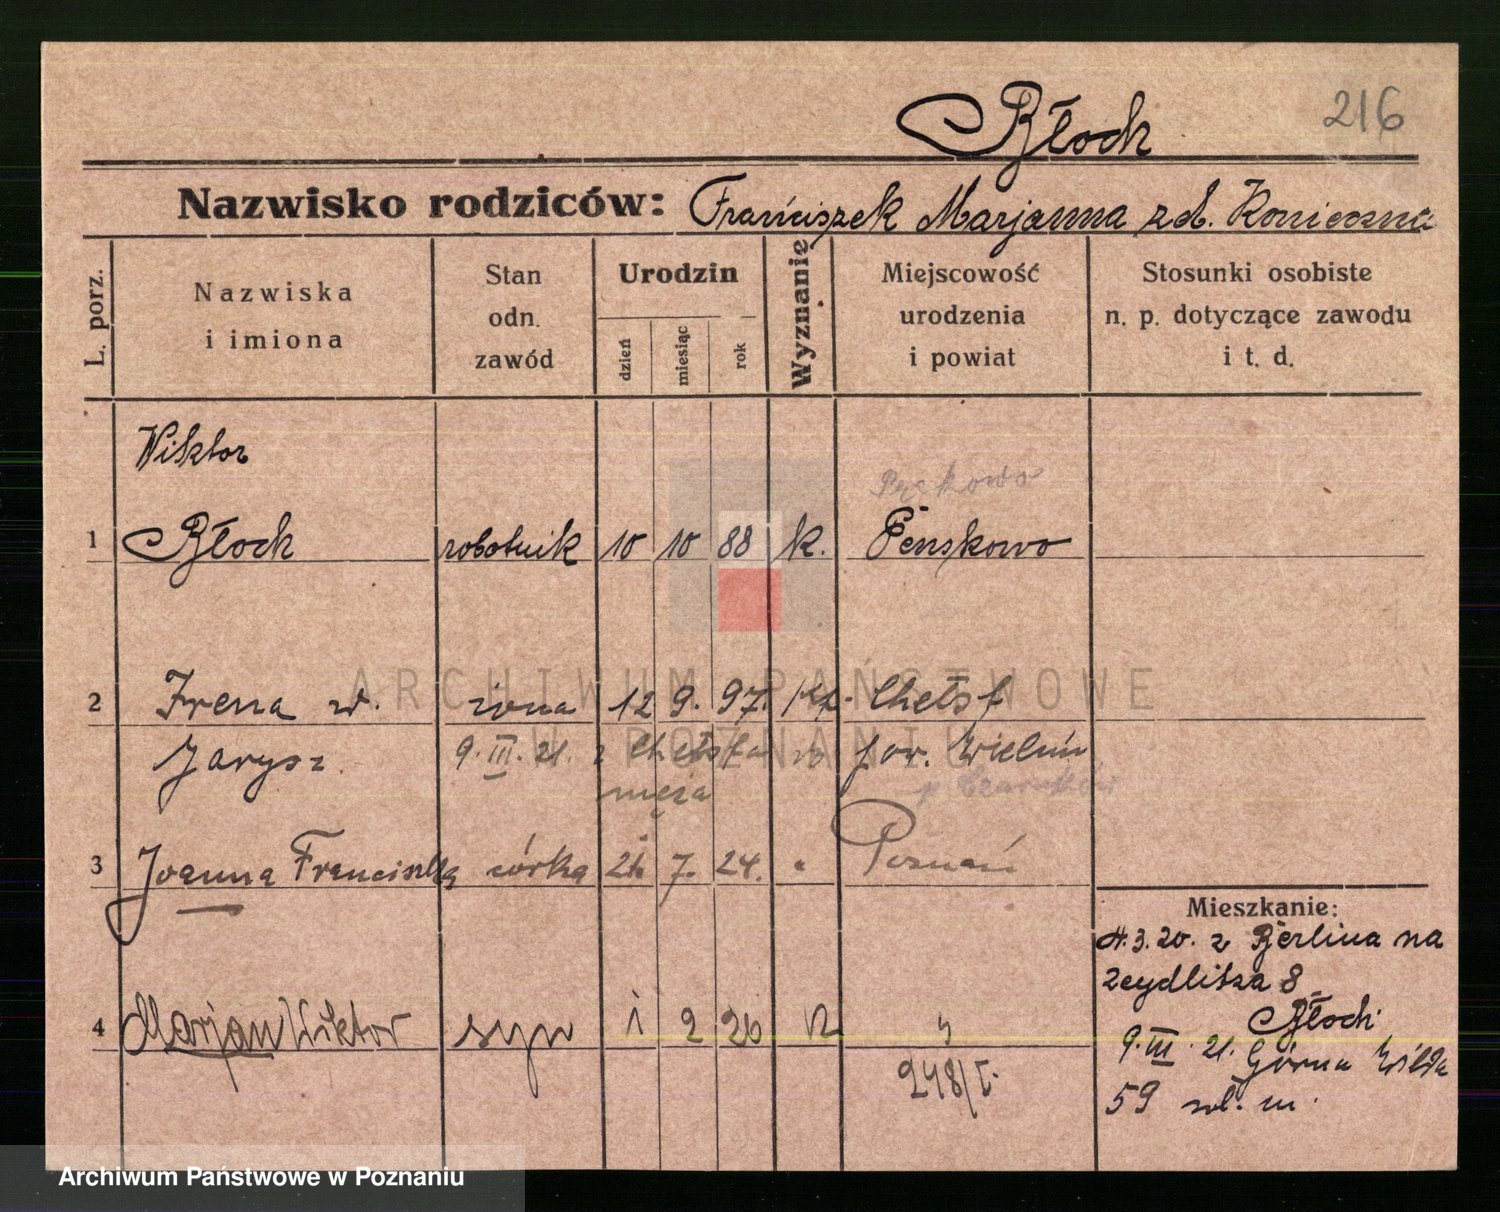 Błoch
216
Nazwisko rodziców: Franciszek Marjanna zd. Konieczna
L. porz.
Nazwiska
i imiona
Stan
odn.
zawód
Urodzin
dzień
miesiąc
rok
Wyznanie
Miejscowość
urodzenia
i powiat
Stosunki osobiste
n. p. dotyczące zawodu
i t. d.
Wiktor
Pęckowo
1 Błoch robotnik 10 10 88 k. Penskowo
ARCHIWUM PAŃSTWOWE
W POZNANIU
2 Irena zd. żona 12 9. 97. kt.
Jarysz 9.III.21. z pow. Wieluń
męża p. Czarnków
3 Joanna Franciszka córka 24 7. 24. " Poznań
Mieszkanie:
4.3.20. z Berlina na
Zeydlitza 8
Błoch
4 Marjan Wiktor syn 1 2 26 "
9.III.21. Górna Wilda
248/I.
59
Archiwum Państwowe w Poznaniu